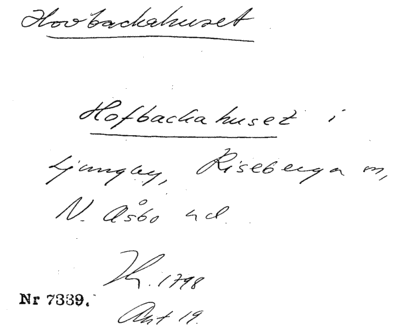 Hovbackahuset
Hofbackahuset i
Ljungby, Riseberga sn,
N. Åsbo hd.
Jb. 1798
Nr 7339.
Akt 19.